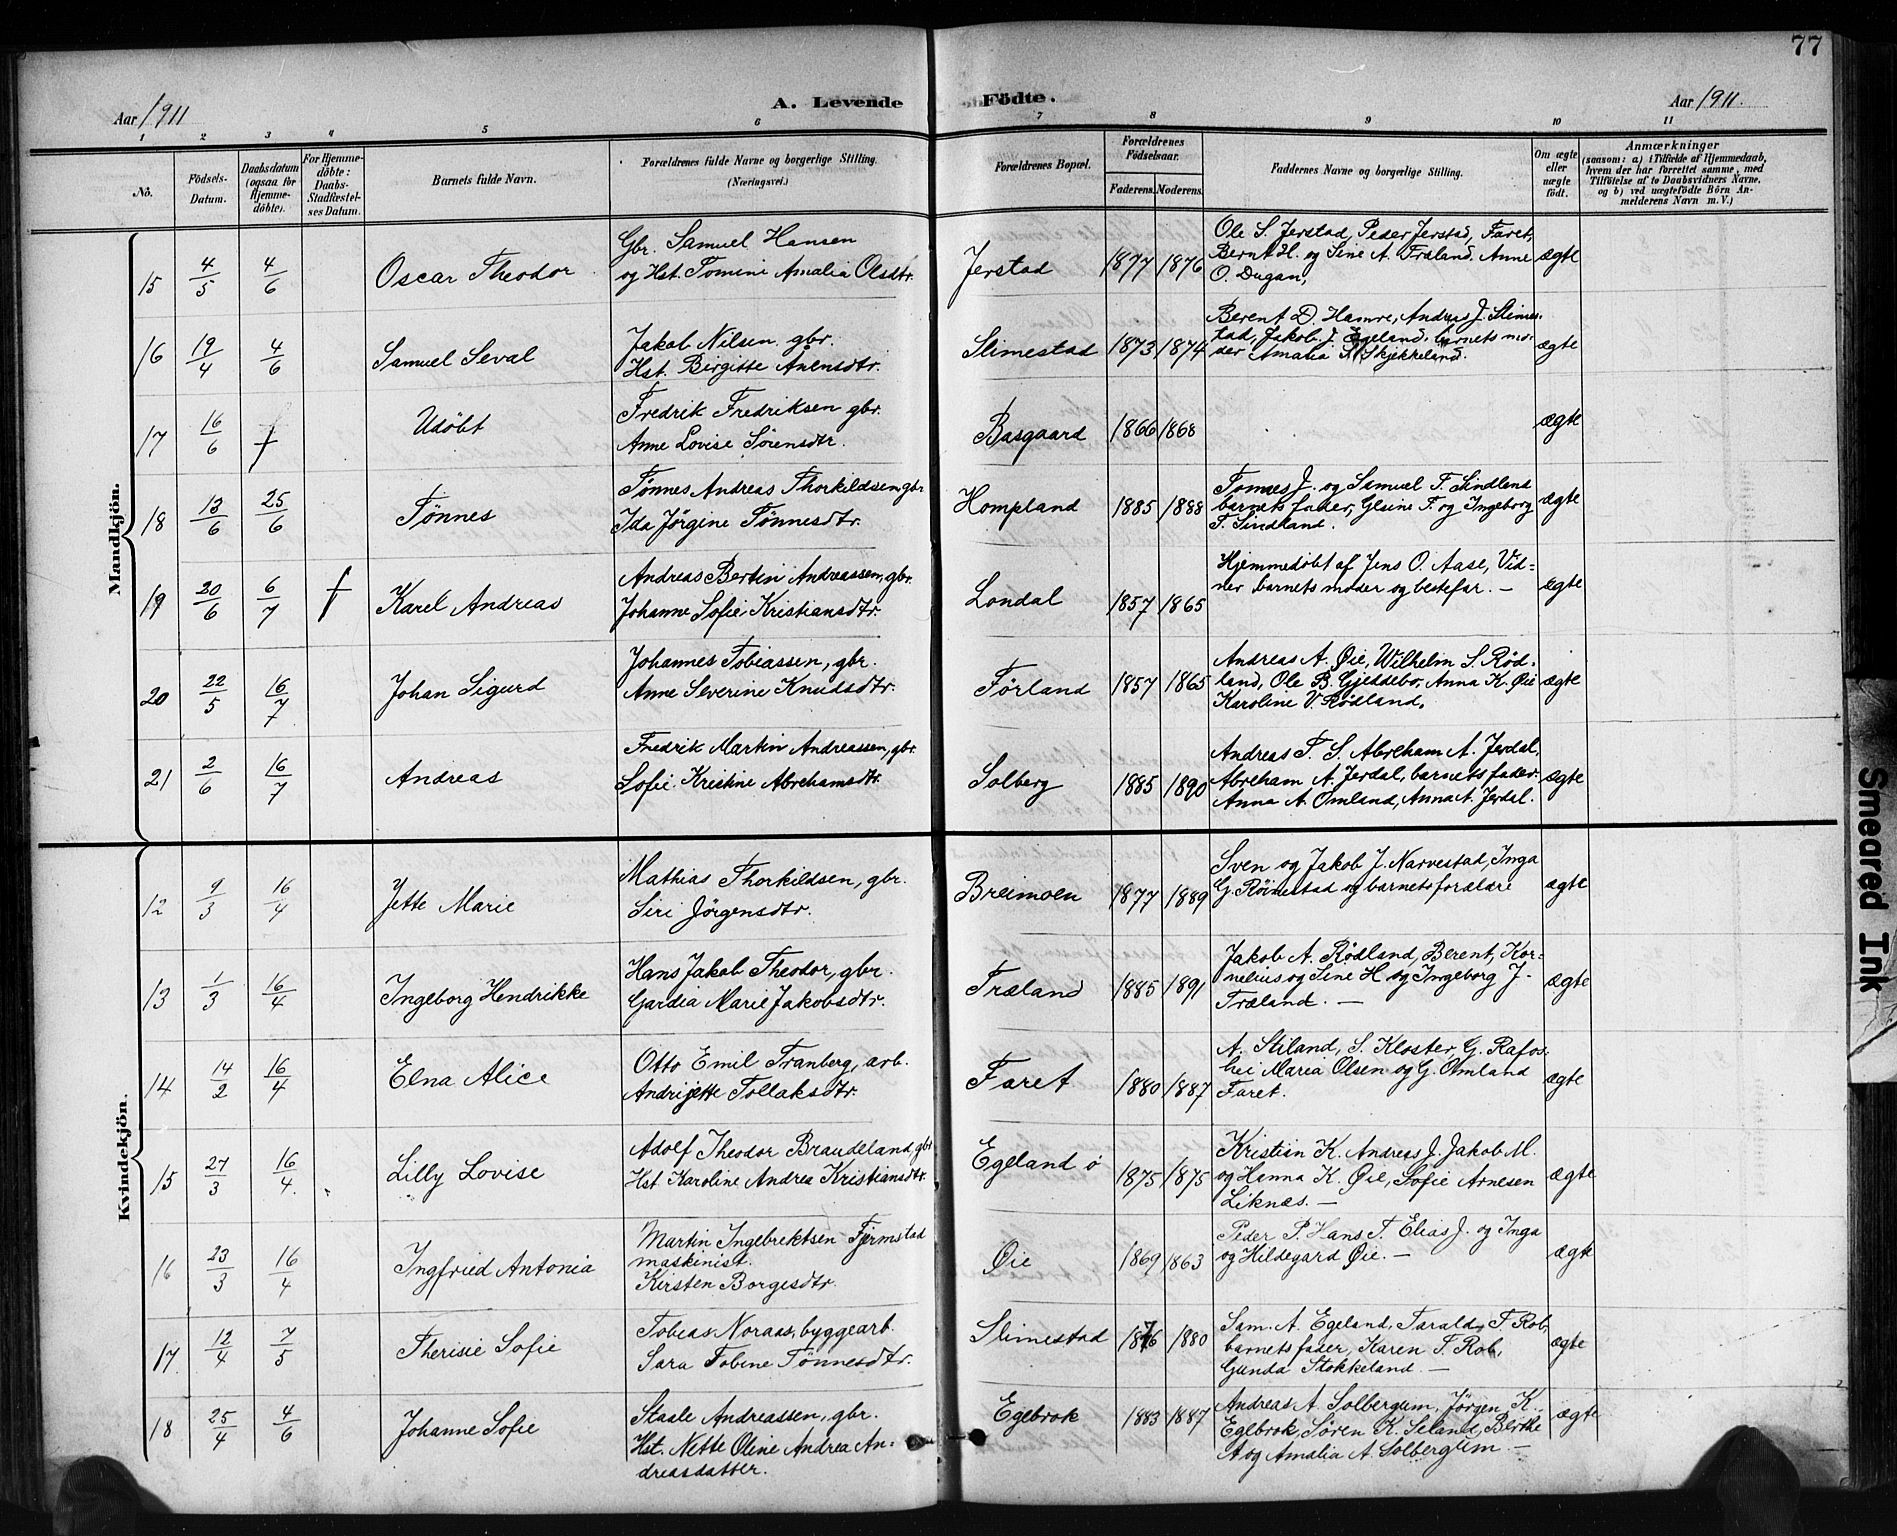 77
Aar 1911
A. Levende Födte.
Aar 1911.
1 2 3 4 5 6 7 8 9 10 11
No.
Födsels-Datum.
Daabsdatum (ogsaa for Hjemme-döbte).
For Hjemme-döbte: Daabs-Stadfæstel-ses Datum.
Barnets fulde Navn.
Forældrenes fulde Navne og borgerlige Stilling.
(Næringsvei.)
Forældrenes Bopæl.
Forældrenes Födselsaar.
Faderens. Moderens.
Faddernes Navne og borgerlige Stilling.
Om ægte eller uægte födt.
Anmærkninger
(saasom: a) i Tilfælde af Hjemmedaab,
hvem der har forrettet samme, med
Tilföielse af to Daabsvidners Navne,
og b) ved uægtefödte Börn An-
melderens Navn m. V.)
Mandkjön.
15 4/5 4/6 Oscar Theodor
Gbr. Samuel Hansen
og Hst. Tomine Amalia Olsdtr.
Jerstad 1877 1876
Ole S. Jerstad, Peder Jerstad, Faret,
Bernt H. og Sine A. Træland. Anne
O. Dugan,
ægte
16 19/4 4/6 Samuel Seval
Jakob Nilsen gbr.
Hst. Birgitte Anensdtr.
Slimestad 1873 1874
Berent D. Hamre, Andreas J. Slimes-
tad, Jakob J. Egeland, barnets mo-
der Amalia S. Skjekkeland.
ægte
17 16/6 † Udöbt
Fredrik Fredriksen gbr.
Anne Lovise Sörensdtr.
Basgaard 1866 1868
ægte
18 13/6 25/6 Tönnes
Tönnes Andreas Thorkildsen, gbr
Ida Jörgine Tönnesdtr.
Hompland 1885 1888
Tomses J. og Samuel T. Sindland
barnets fader, Gsine T. og Ingeborg
T. Sindland.
ægte
19 20/6 6/7 † Karel Andreas
Andreas Bertin Andreassen, gbr.
Johanne Sofie Kristiansdtr.
Londal 1857 1865
Hjemmedøbt af Jens O. Aase, Vid-
ner barnets moder og bestefar. —
ægte
20 22/5 16/7 Johan Sigurd
Johannes Tobiassen, gbr.
Anne Severine Knudsdtr.
Förland 1857 1865
Andreas A. Øie, Wilhelm S. Rød-
land, Ole B. Gjeddebo, Anna K. Øie
Karoline V. Rødland,
ægte
21 2/6 16/7 Andreas
Fredrik Martin Andreassen, gbr.
Sofie Kristine Abrehamsdtr.
Solberg 1885 1890
Andreas T. S. Abreham A. Jerdal,
Abreham A. Jerdal, barnets fader.
Anna A. Omland, Anna A. Jerdal.
ægte
Kvindekjön.
12 9/3 16/4 Jette Marie
Mathias Thorkildsen, gbr.
Siri Jörgensdtr.
Breimoen 1877 1889
Sven og Jakob J. Narvestad, Inga
G. Röinestad og barnets forældre
ægte
13 1/3 16/4 Ingeborg Hendrikke
Hans Jakob Theodor, gbr.
Gardia Marie Jakobsdtr.
Træland 1885 1891
Jakob A. Rødland, Berent, Kor-
nelius og Sine H og Ingeborg J-
Træland. —
ægte
14 14/2 16/4 Elna Alice
Otto Emil Tranberg, arb.
Andrijette Tollaksdtr.
Faret 1880 1887
A. Stiland, S. Kloster, G. Rafos-
hei Maria Olsen og G. Omland
Faret.
ægte
15 27/3 16/4. Lilly Lovise
Adolf Theodor Braudeland, gbr
Hst Karoline Andrea Kristiansdtr.
Egeland ø 1875 1875
Kristian K. Andreas J. Jakob M.
og Hanna K. Øie, Sofie Arnesen
Liknæs. —
ægte
16 23/3 16/4 Ingfried Antonia
Martin Ingebrektsen Fjermstad
maskinist.
Kirsten Borgesdtr.
Øie 1869 1863
Peder P. Hans T. Elias J. og Inga
og Hildegard Øie. —
ægte
17. 12/4 7/5 Therisie Sofie
Tobias Noraas, byggearb.
Sara Tobine Tönnesdtr.
Slimestad 1876 1880
Sam. A. Egeland, Tarald, T Rob,
barnets fader, Karen T. Rob,
Gunda Stokkeland —
ægte
18 25/4 4/6 Johanne Sofie
Staale Andreassen, gbr.
Hst. Nette Oline Andrea An-
dreasdatter.
Egebrok 1883 1887
Andreas A. Solbergum, Jörgen K.
Egebrok, Søren K. Seland, Berthe
A og Amalia A. Solbergum —
ægte
Smeared Ink